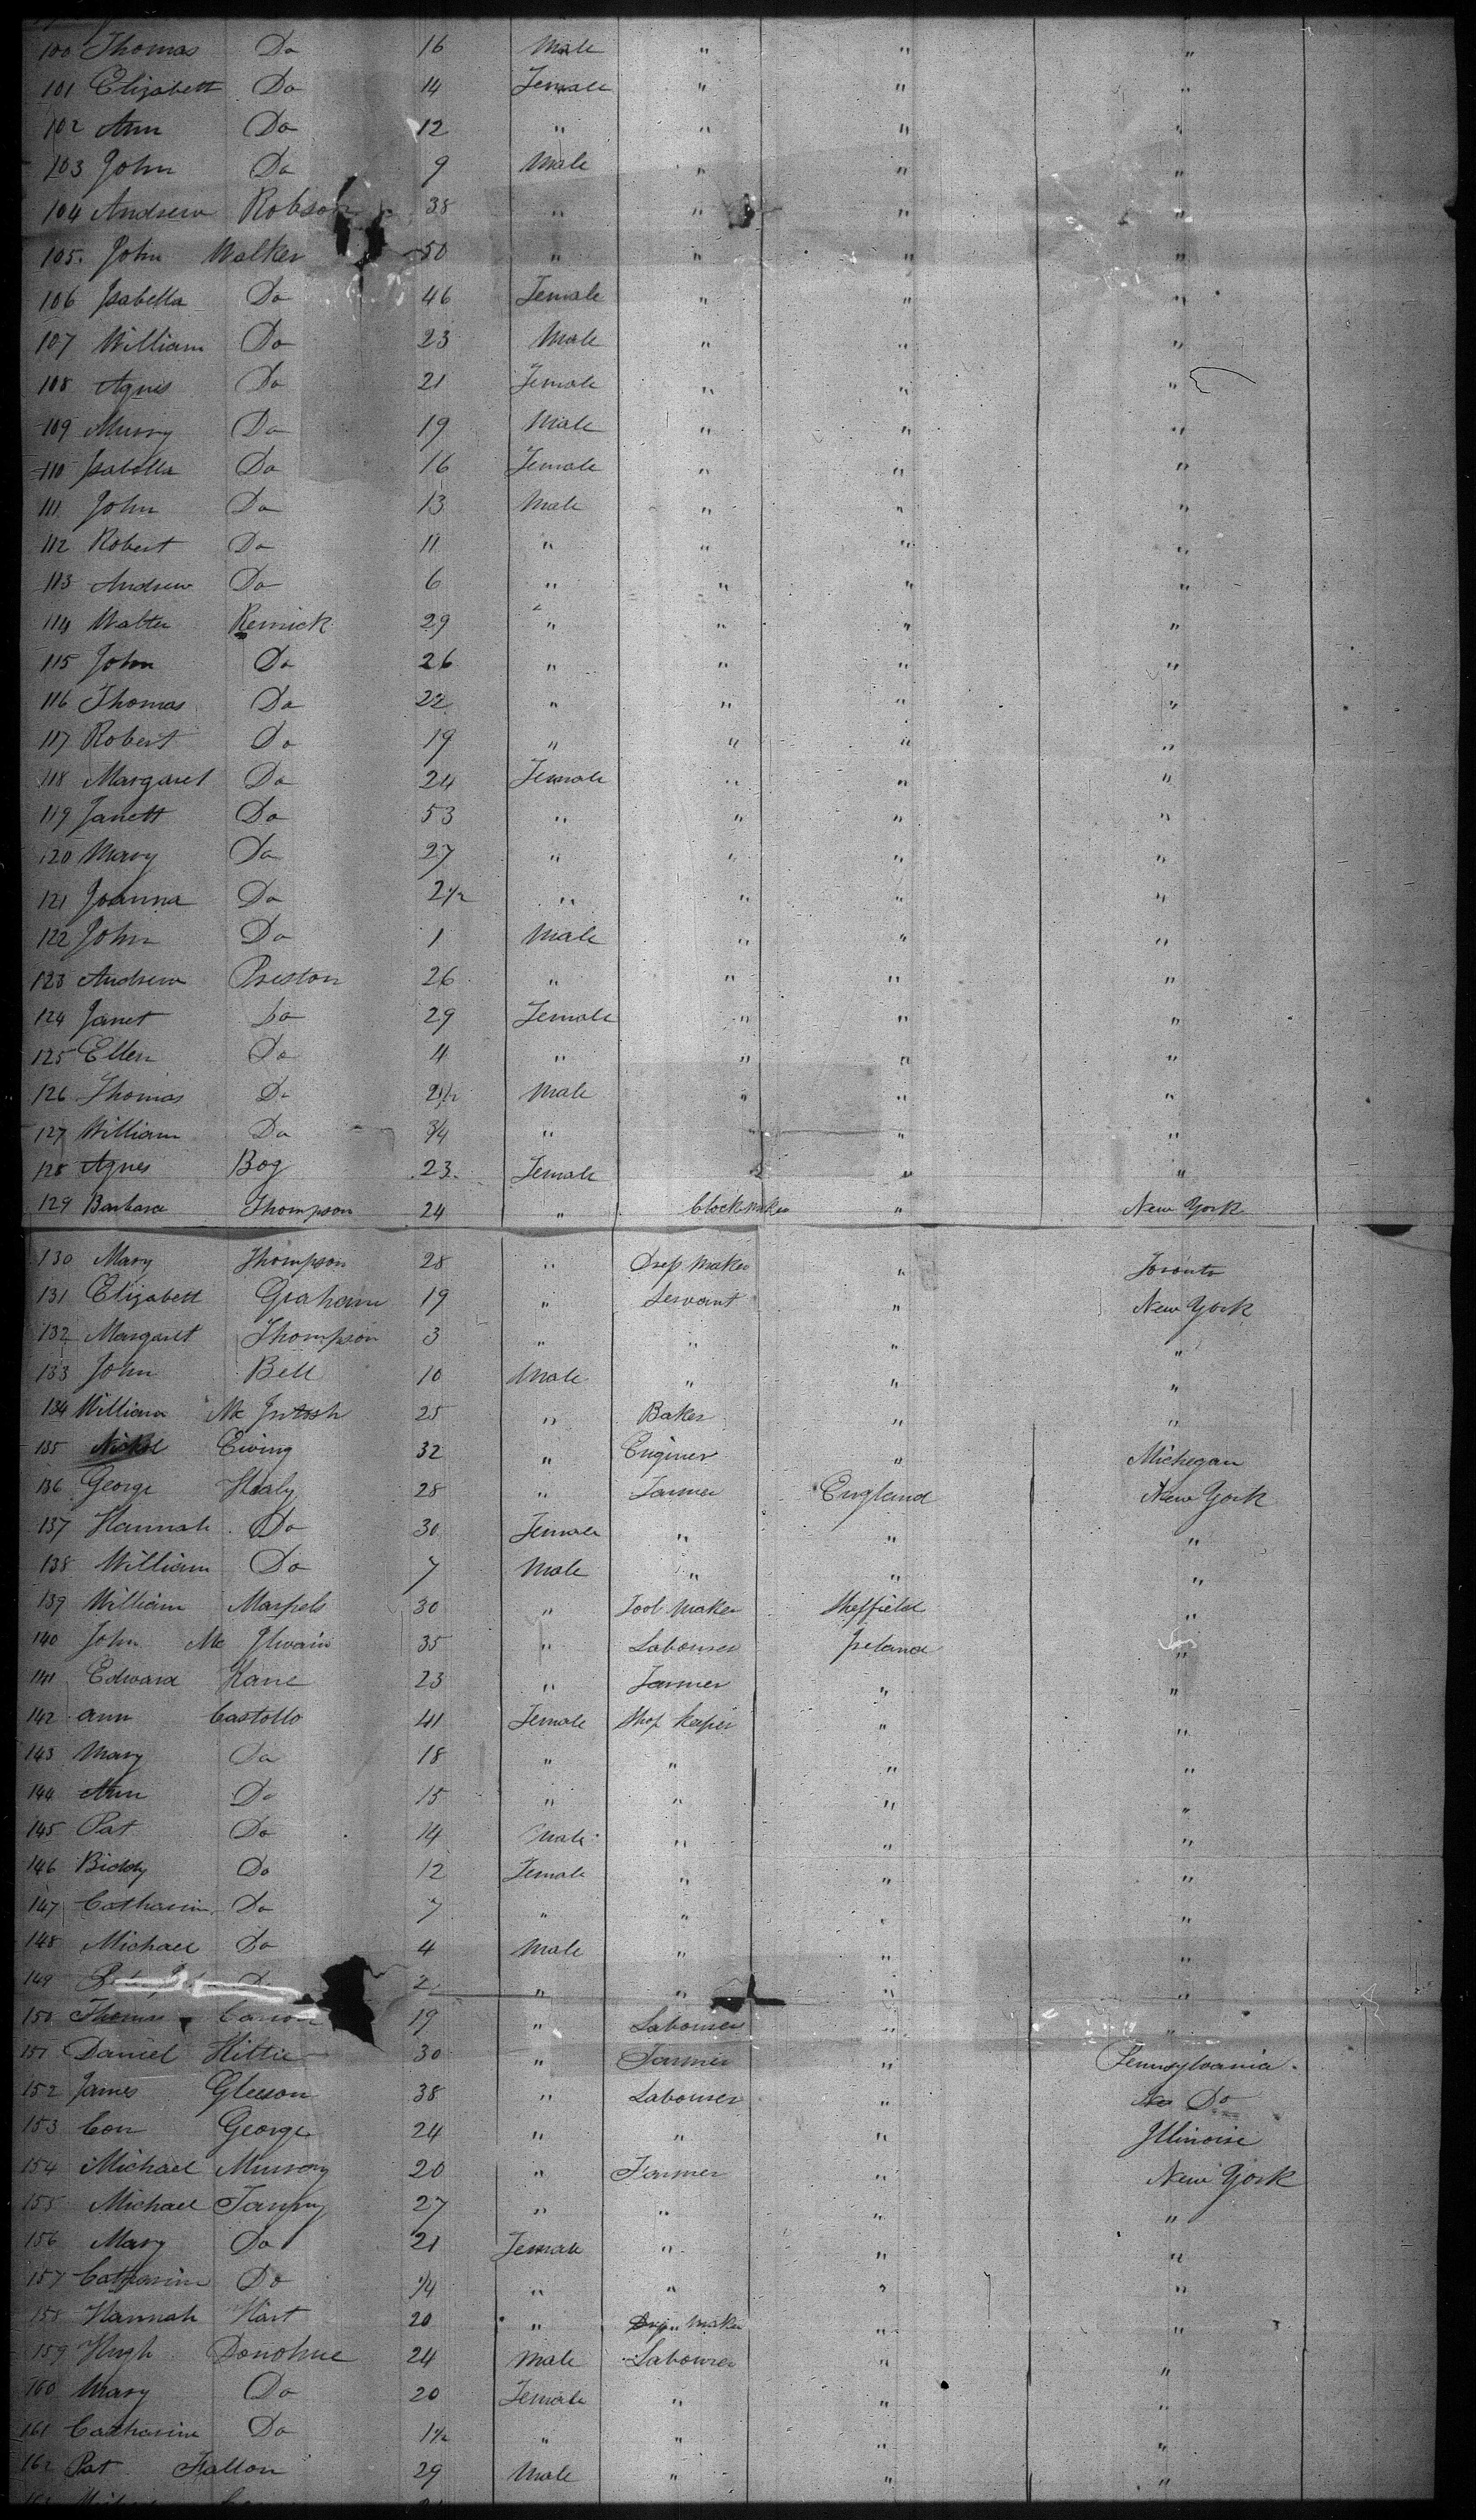 100 Thomas Do 16 Male " " "
101 Elizabett Do 14 Female " " "
102 Ann Do 12 " " " "
103 John Do 9 Male " " "
104 Andrew Robson 38 " " " "
105. John Walker 50 " " " "
106 Isabella Do 46 Female " " "
107 William Do 23 Male " " "
108 Agnes Do 21 Female " " "
109 Murry Do 19 Male " " "
110 Isabella Do 16 Female " " "
111 John Do 13 Male " " "
112 Robert Do 11 " " " "
113 Andrew Do 6 " " " "
114 Walter Remick 29 " " " "
115 John Do 26 " " " "
116 Thomas Do 22 " " " "
117 Robert Do 19 " " " "
118 Margaret Do 24 Female " " "
119 Janett Do 53 " " " "
120 Mary Do 27 " " " "
121 Joanna Do 2½ " " " "
122 John Do 1 Male " " "
123 Andrew Preston 26 " " " "
124 Janet Do 29 Female " " "
125 Ellen Do 4 " " " "
126 Thomas Do 2½ Male " " "
127 William Do ¾ " " " "
128 Agnes Bog 23 Female " "
129 Barbara Thompson 24 " Clock Maker " New York
130 Mary Thompson 28 " Dress Maker " Toronto
131 Elizabett Graham 19 " Servant " New York
132 Margaret Thompson 3 " " " "
133 John Bell 10 Male " " "
134 William Mc Intosh 25 " Baker " "
135 Nickol Ewing 32 " Enginer " Michegan
136 George Healy 28 " Farmer England New York
137 Hannah Do 30 Female " " "
138 William Do 7 Male " " "
139 William Marpels 30 " Tool Maker Sheffield "
140 John Mc Ilwain 35 " Labourer Ireland "
141 Edward Kane 23 " Farmer " "
142 Ann Costollo 41 Female Shop Keeper " "
143 Mary Do 18 " " " "
144 Ann Do 15 " " " "
145 Pat Do 14 Male " " "
146 Biddy Do 12 Female " " "
147 Catharine Do 7 " " " "
148 Michael Do 4 Male " " "
149 Do 2 " " " "
150 Thomas 19 " Labourer " "
151 Daniel Hittie 30 " Farmer " Pennsylvania
152 James Gleeson 38 " Labourer " Do
153 Con George 24 " " " Illinoise
154 Michael Murray 20 " Farmer " New York
155 Michael 27 " " " "
156 Mary Do 21 Female " " "
157 Catharine Do ¼ " " " "
158 Hannah Hart 20 " Maker " "
159 Hugh Donohue 24 Male Labourer " "
160 Mary Do 20 Female " " "
161 Catharine Do 1½ " " " "
162 Pat Fallon 29 Male " " "